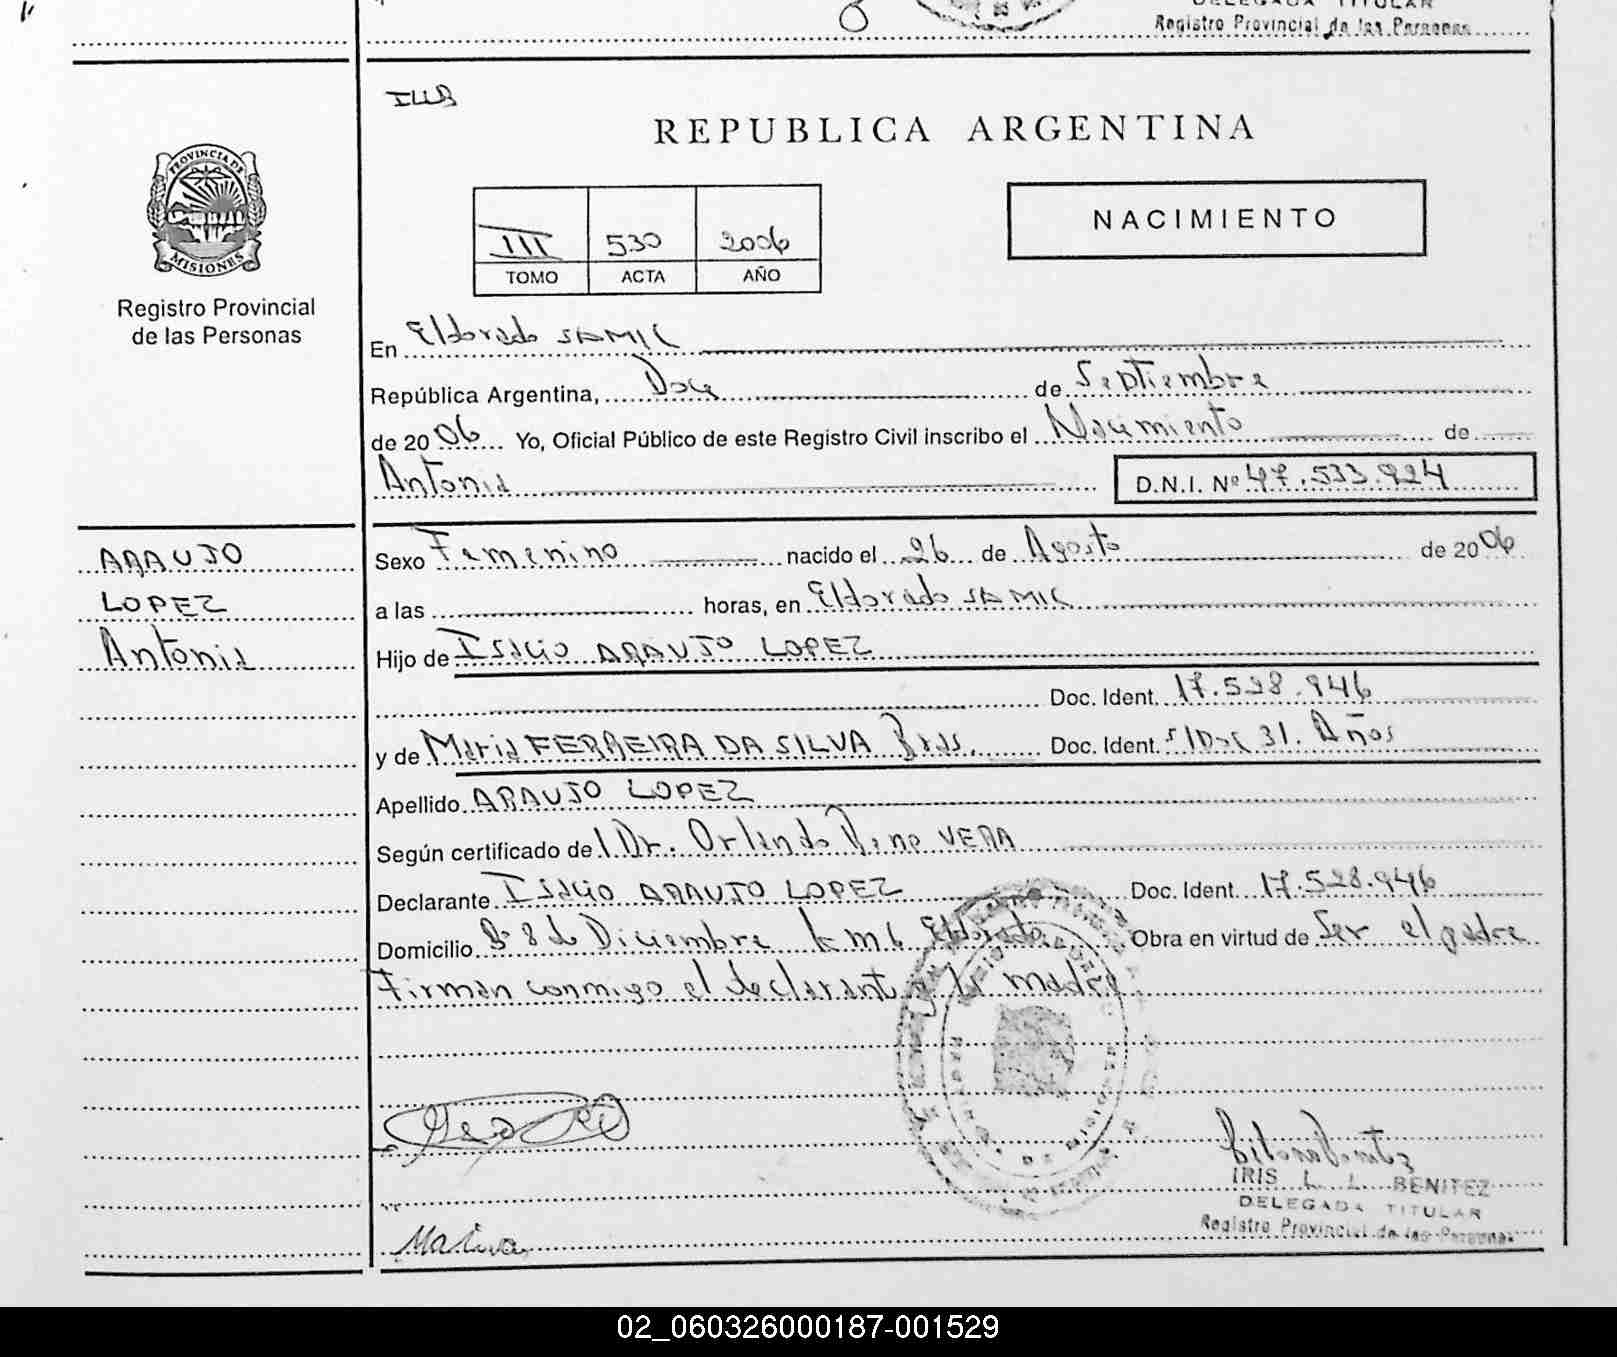 DELEGADA TITULAR
Registro Provincial de las Personas
REPUBLICA ARGENTINA
PROVINCIA DE
MISIONES
Registro Provincial
de las Personas
III 530 2006
TOMO ACTA AÑO
NACIMIENTO
En Eldorado SAMIC
República Argentina, Doce de Septiembre
de 2006 Yo, Oficial Público de este Registro Civil inscribo el Nacimiento de
Antonia D.N.I. Nº 47.533.924
ARAUJO
LOPEZ
Antonia
Sexo Femenino nacido el 26 de Agosto de 2006
a las horas, en Eldorado SAMIC
Hijo de Isacio ARAUJO LOPEZ
Doc. Ident. 17.528.946
y de Maria FERREIRA DA SILVA Bras. Doc. Ident. s/Doc 31. Años
Apellido ARAUJO LOPEZ
Según certificado del Dr. Orlando Rene VERA
Declarante Isacio ARAUJO LOPEZ Doc. Ident. 17.528.946
Domicilio Bº 8 de Diciembre km 6 Eldorado Obra en virtud de Ser el padre
Firman conmigo el declarante y la madre
IRIS L. L. BENITEZ
DELEGADA TITULAR
Registro Provincial de las Personas
02_060326000187-001529